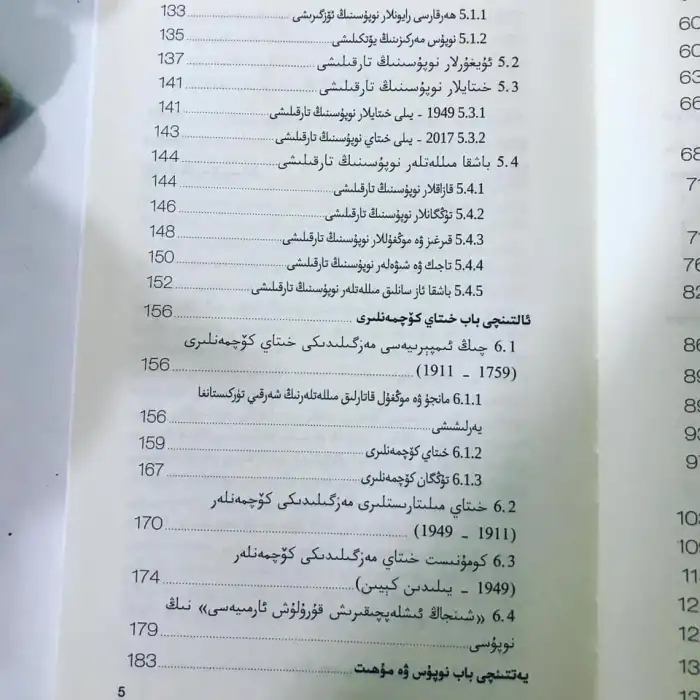 5.1.1 ھەرقايسى رايونلار نوپۇسىنىڭ ئۆزگىرىشى 133
5.1.2 نوپۇس مەركىزىنىڭ يۆتكىلىشى 135
5.2 ئۇيغۇرلار نوپۇسىنىڭ تارقىلىشى 137
5.3 خىتايلار نوپۇسىنىڭ تارقىلىشى 141
5.3.1 1949 - يىلى خىتايلار نوپۇسىنىڭ تارقىلىشى 141
5.3.2 2017 - يىلى خىتاي نوپۇسىنىڭ تارقىلىشى 143
5.4 باشقا مىللەتلەر نوپۇسىنىڭ تارقىلىشى 144
5.4.1 قازاقلار نوپۇسىنىڭ تارقىلىشى 144
5.4.2 تۇڭگانلار نوپۇسىنىڭ تارقىلىشى 146
5.4.3 قىرغىز ۋە موڭغۇللار نوپۇسىنىڭ تارقىلىشى 148
5.4.4 تاجىك ۋە شىۋەلەر نوپۇسىنىڭ تارقىلىشى 150
5.4.5 باشقا ئاز سانلىق مىللەتلەر نوپۇسىنىڭ تارقىلىشى 152
ئالتىنچى باب خىتاي كۆچمەنلىرى 156
6.1 چىڭ ئىمپېرىيەسى مەزگىلىدىكى خىتاي كۆچمەنلىرى
(1759 - 1911) 156
6.1.1 مانجۇ ۋە موڭغۇل قاتارلىق مىللەتلەرنىڭ شەرقىي تۈركىستانغا
يەرلىشىشى 156
6.1.2 خىتاي كۆچمەنلىرى 159
6.1.3 تۇڭگان كۆچمەنلىرى 167
6.2 خىتاي مىلىتارىستلىرى مەزگىلىدىكى كۆچمەنلەر
(1911 - 1949) 170
6.3 كوممۇنىست خىتاي مەزگىلىدىكى كۆچمەنلەر
(1949 - يىلىدىن كېيىن) 174
6.4 «شىنجاڭ ئىشلەپچىقىرىش قۇرۇلۇش ئارمىيەسى» نىڭ
نوپۇسى 179
يەتتىنچى باب نوپۇس ۋە مۇھىت 183
5
60
60
63
66
68
76
82
86
10
11
12
12
13